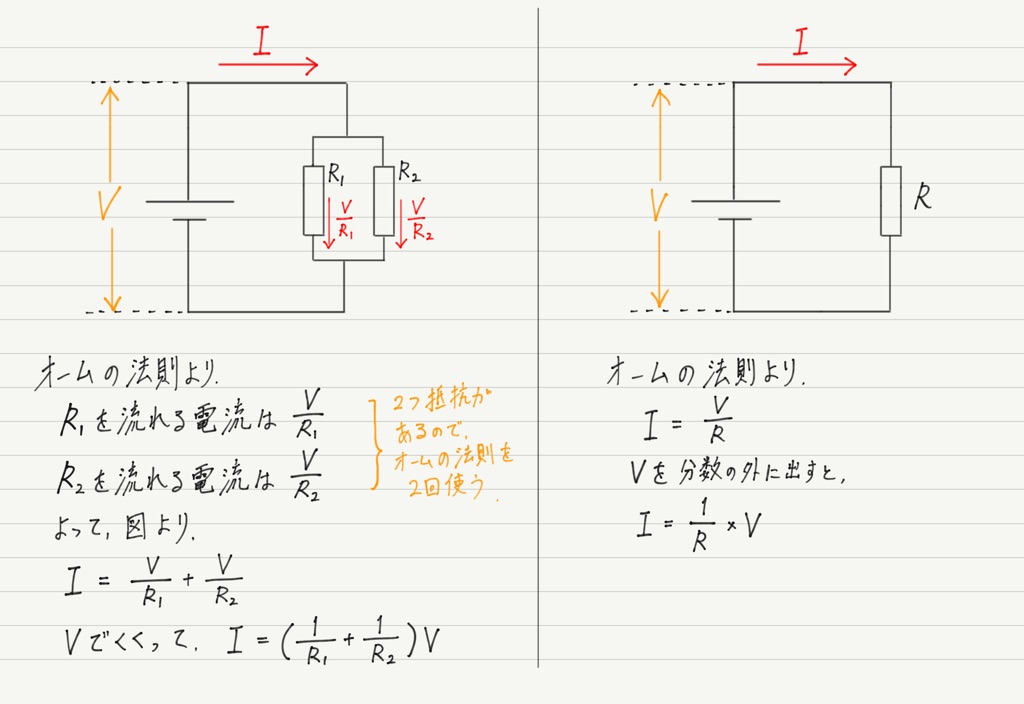 I
V
R₁
R₂
V/R₁
V/R₂
オームの法則より.
R₁を流れる電流は V/R₁
R₂を流れる電流は V/R₂
2つ抵抗が
あるので,
オームの法則を
2回使う.
よって, 図より.
I = V/R₁ + V/R₂
Vでくくって. I = (1/R₁ + 1/R₂)V
I
V
R
オームの法則より.
I = V/R
Vを分数の外に出すと,
I = 1/R × V